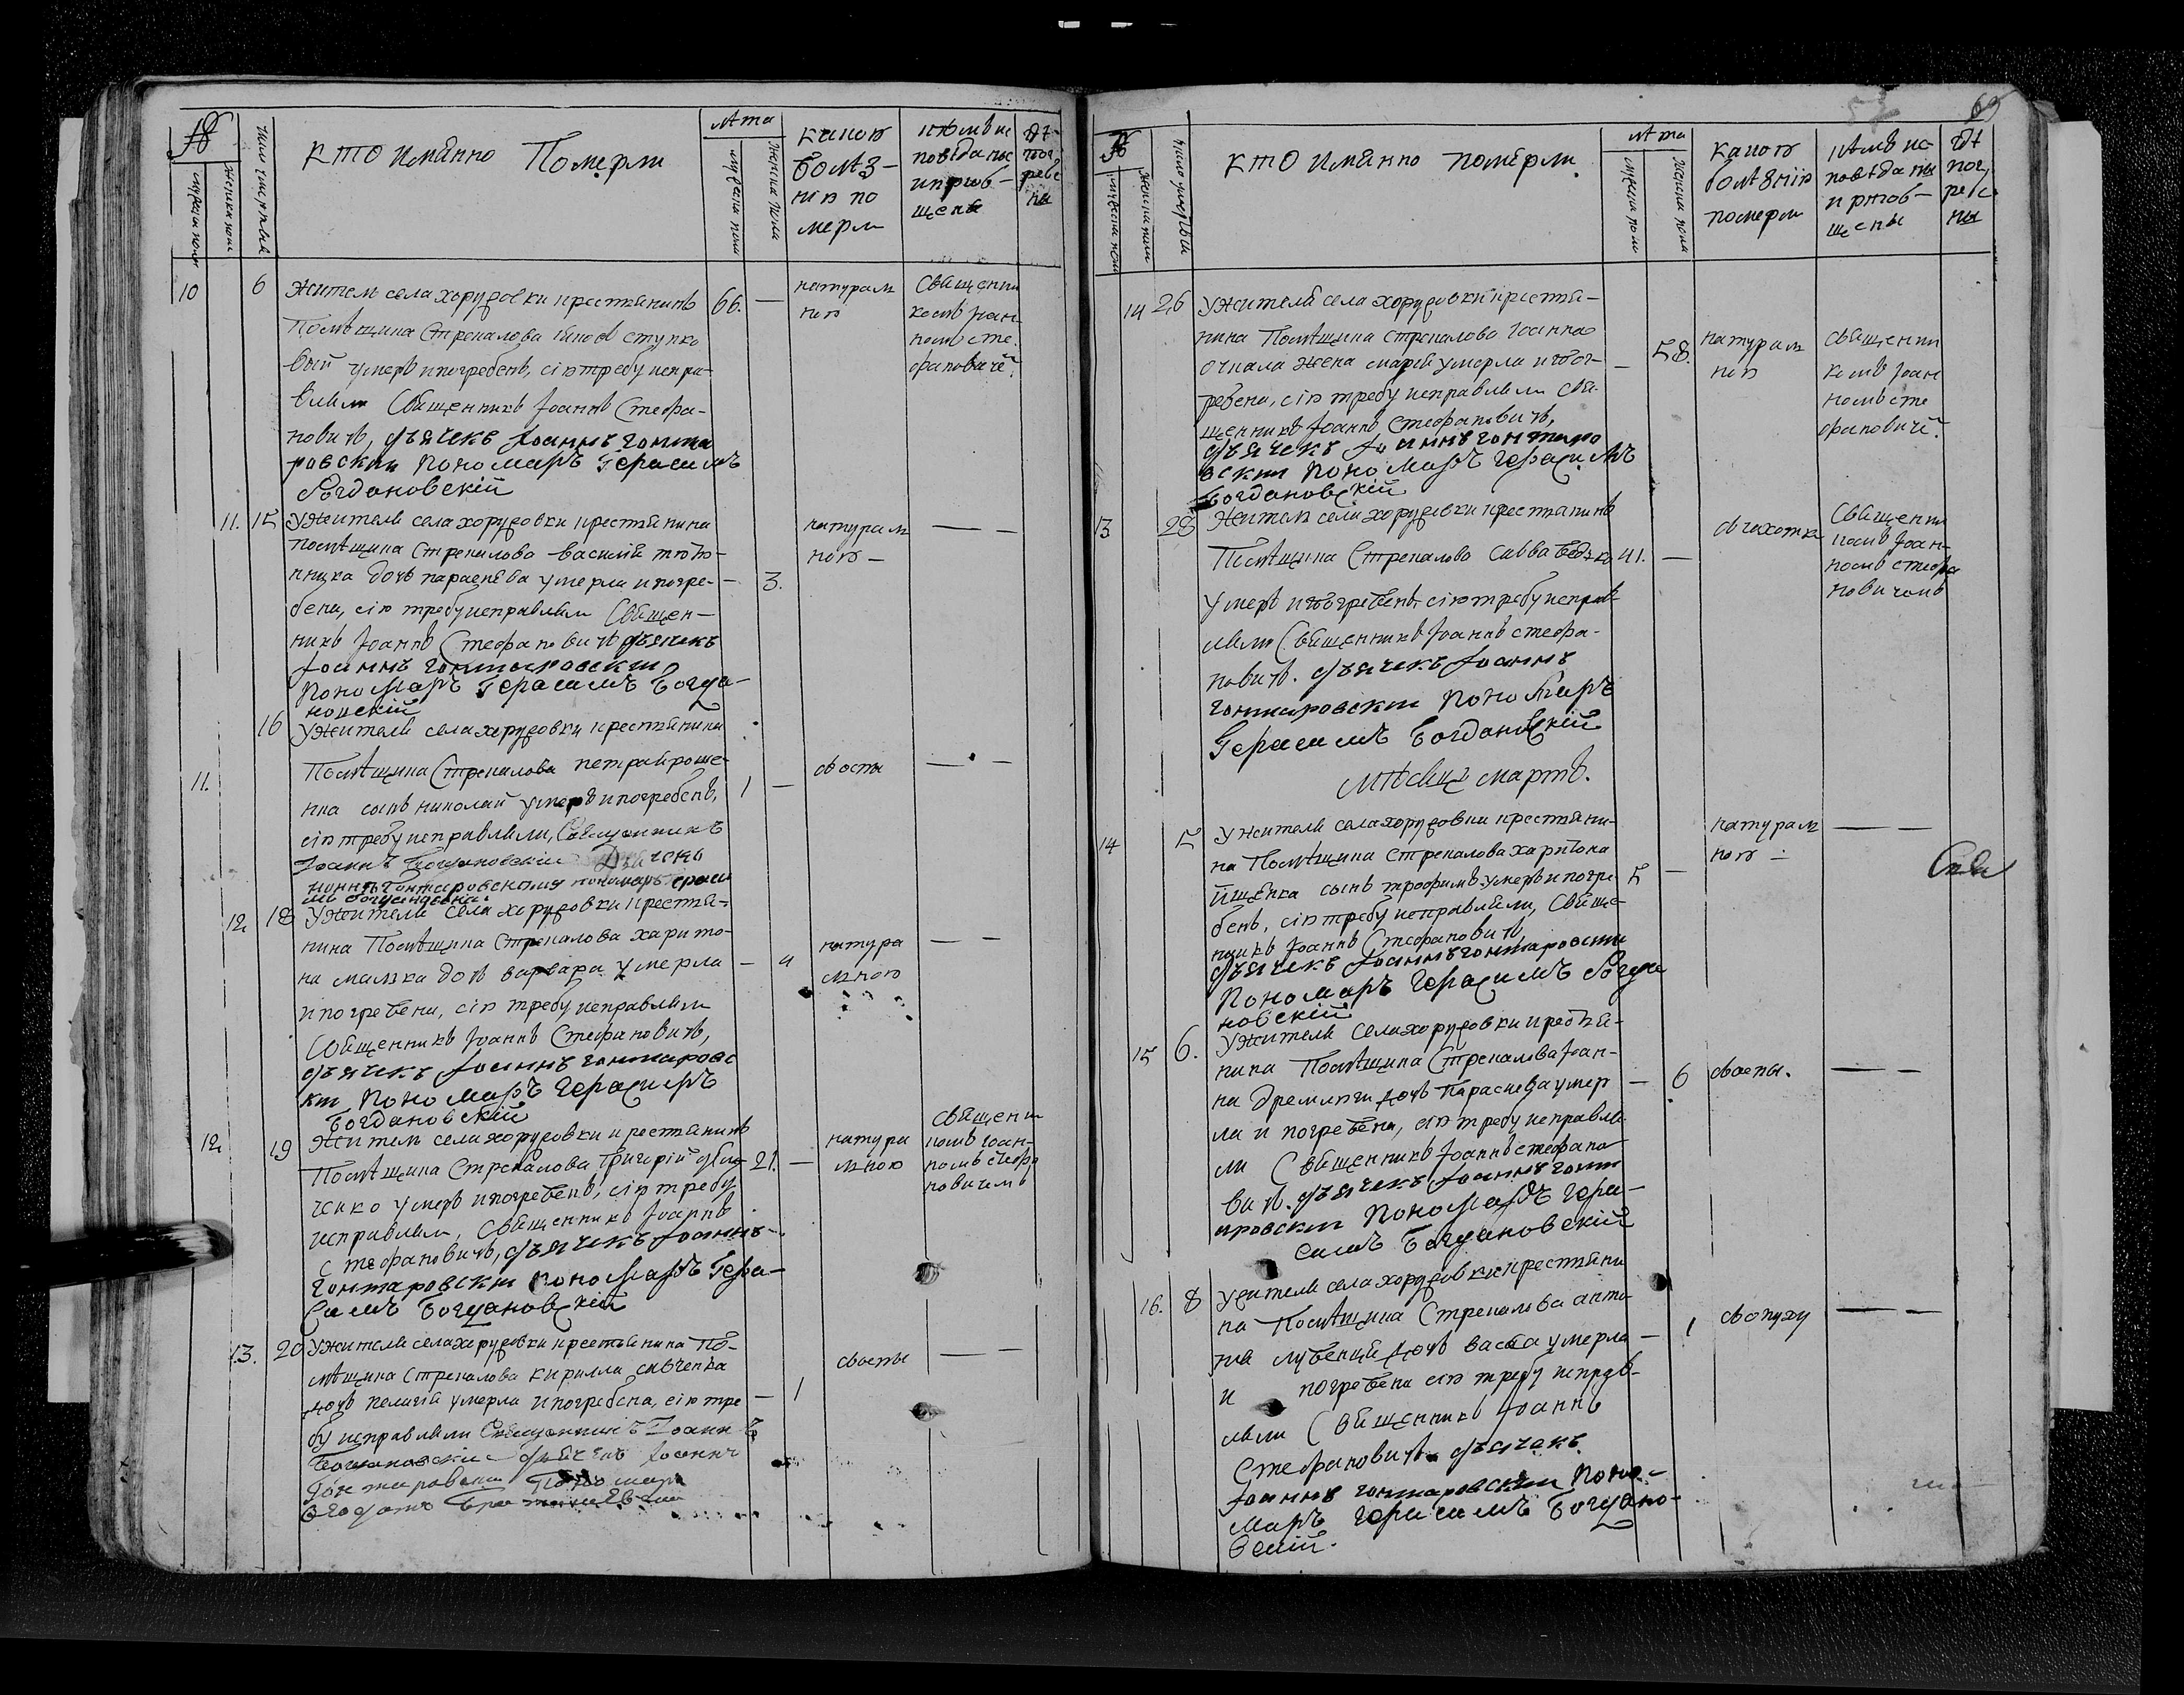 №
мужеска полу
женска полу
число умертвія
кто имянно Померли
лѣта
мужеска полу
женска пола
какою
болѣз-
нію по
мерли
кѣмъ ис
повѣданы
и приоб-
щены
гдѣ
погребе
ны
10 6 Житель села хорудовки крестьянинъ 66. —
Помѣщика Стрекалова
умеръ и погребенъ, сію требу испра-
вляли Священникъ Іоаннъ Стефа-
новичъ, дьячекъ Іоаннъ гонта
ровский Пономаръ Герасимъ
Богдановскій
натурал
ною
Священни
комъ Іоан
помъ Сте
фановичемъ
11. 15 У Жителя села хорудовки крестьянина
помѣщика Стрекалова василія
дочь параскѣва умерла и погре- — 3.
бена, сію требу исправляли Священ-
никъ Іоаннъ Стефановичъ дьячекъ
Іоаннъ гонтаровский
Пономаръ Герасимъ Богда-
новскій
натурал
ною — — —
16 У Жителя села хорудовки крестьянина
11. Помѣщика Стрекалова петра
сынъ николай умеръ и погребенъ, 1 —
сію требу исправляли, Священникъ
Іоаннъ Богдановскій Дьячекъ
Іоаннъ Гонтаровский пономаръ гераси
мъ Богдановскій
оспы — —
12 18 У Жителя села хорудовки крестья-
нина Помѣщика Стрекалова харито-
на дочь варвара умерла — 4
и погребена, сію требу исправляли
Священникъ Іоаннъ Стефановичъ,
дьячекъ Іоаннъ гонтаровс
кий Пономаръ Герасимъ
Богдановскій
натура
лною — —
12 19 Житель села хорудовки крестьянинъ
Помѣщика Стрекалова Григорій 21. —
умеръ и погребенъ, сію требу
исправляли, Священникъ Іоаннъ
Стефановичъ, дьячекъ Іоаннъ
Гонтаровский Пономаръ Гера-
симъ Богдановскій
натура
лною
Священни
комъ Іоан-
номъ Стефа
новичемъ
13. 20 У Жителя села хорудовки крестьянина По-
мѣщика Стрекалова кирилла савченка
дочь пелагія умерла и погребена, сію тре — 1
бу исправляли Священникъ Іоаннъ
Богдановскій дьячекъ Іоаннъ
Гонтаровский Пономаръ
оспы — —
69
№
мужеска полу
женска полу
число умертвія
кто имянно померли.
лѣта
мужеска полу
женска пола
какою
болѣзнію
померли
кѣмъ ис-
повѣданы
и приоб-
щены
гдѣ
погребе
ны
14 26 У Жителя села хорудовки крестья-
нина Помѣщика Стрекалова Іоанна
жена марія умерла и пог- — 58.
ребена, сію требу исправляли Свя-
щенникъ Іоаннъ Стефановичъ,
дьячекъ Іоаннъ гонтаро
вский Пономаръ Герасимъ
Богдановскій
натурал
ною
Священни
комъ Іоан
номъ Сте
фановичемъ.
13 28 Житель села хорудовки крестьянинъ
Помѣщика Стрекалова Савва 41. —
умеръ и погребенъ, сію требу исправ-
ляли Священникъ Іоаннъ Стефа-
новичъ. дьячекъ Іоаннъ
гонтаровский Пономаръ
Герасимъ Богдановскій
чахотка
Священни
комъ Іоан-
номъ Стефа
новичемъ
Мѣсяцъ мартъ.
14 5 У Жителя села хорудовки крестьяни-
на Помѣщика Стрекалова харитона
сынъ трофимъ умеръ и погре 5 —
бенъ, сію требу исправляли, Свяще-
нникъ Іоаннъ Стефановичъ,
дьячекъ Іоаннъ гонтаровский
Пономаръ Герасимъ Богда
новскій
натурал
ною — — —
15 6. У Жителя села хорудовки крестья-
нина Помѣщика Стрекалова Іоан-
на дочь Параскева умер — 6
ла и погребена, сію требу исправля
ли Священникъ Іоаннъ Стефано
вичъ. дьячекъ Іоаннъ гонт
аровский Пономаръ Гера-
симъ Богдановскій
оспы. — —
16. 8 У жителя села хорудовки крестьяни
на Помѣщика Стрекалова анто
на дочь васса умерла — 1
и погребена сію требу исправ-
ляли Священникъ Іоаннъ
Стефановичъ дьячекъ
Іоаннъ гонтаровский Поно-
маръ Герасимъ Богдано-
вскій.
— —